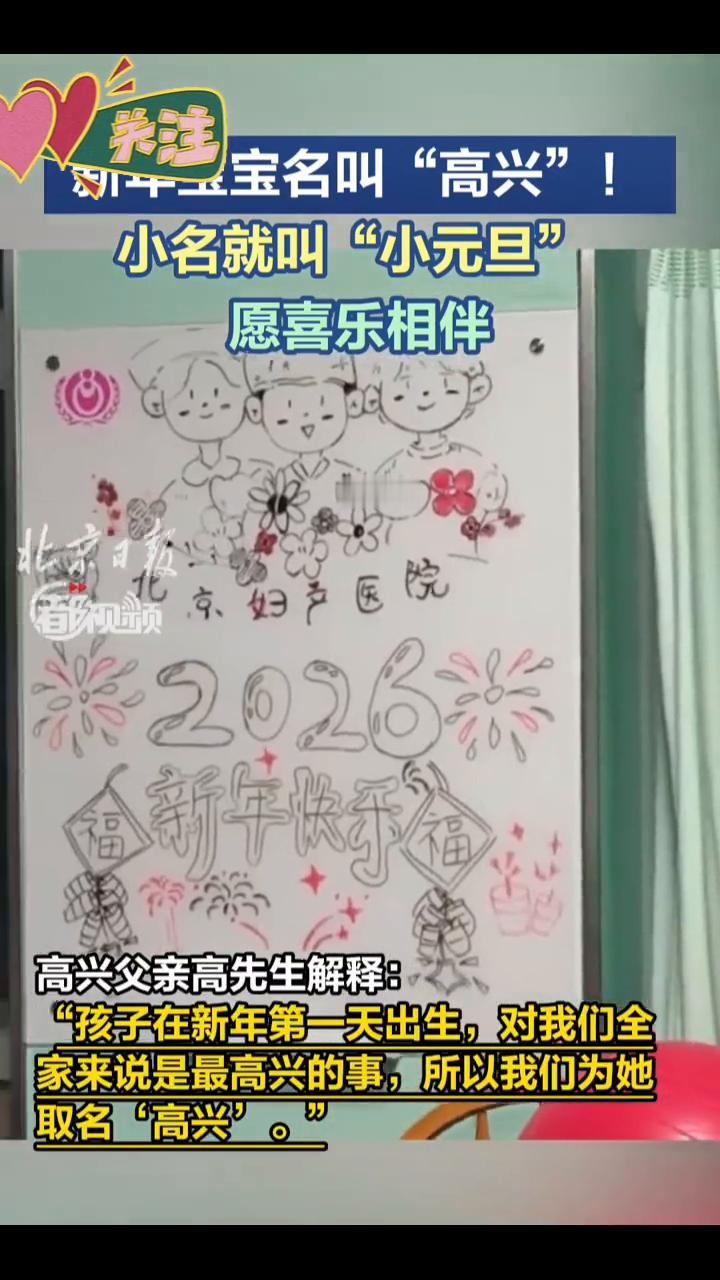 关注
新年宝宝名叫“高兴”！
小名就叫“小元旦”
愿喜乐相伴
北京日报
都视频
北京妇产医院
2026
新年快乐
福
福
高兴父亲高先生解释：
“孩子在新年第一天出生，对我们全
家来说是最高兴的事，所以我们为她
取名‘高兴’。”